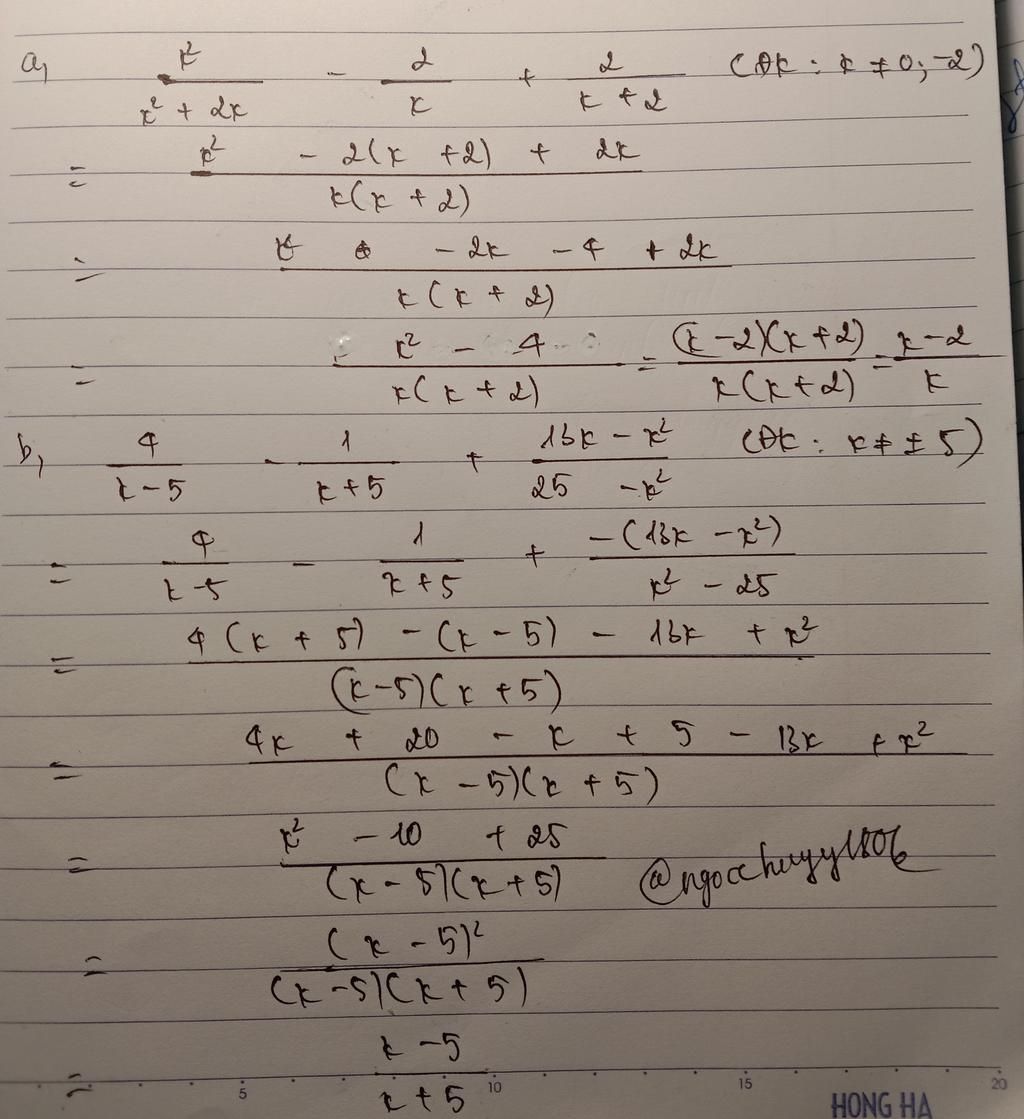 a, x²/(x² + 2x) - 2/x + 2/(x + 2) (ĐK : x ≠ 0 ; -2)
= (x² - 2(x + 2) + 2x)/(x(x + 2))
= (x² - 2x - 4 + 2x)/(x(x + 2))
= (x² - 4)/(x(x + 2)) = ((x - 2)(x + 2))/(x(x + 2)) = (x - 2)/x
b, 4/(x - 5) - 1/(x + 5) + (13x - x²)/(25 - x²) (ĐK : x ≠ ± 5)
= 4/(x - 5) - 1/(x + 5) + (-(13x - x²))/(x² - 25)
= (4(x + 5) - (x - 5) - 13x + x²)/((x - 5)(x + 5))
= (4x + 20 - x + 5 - 13x + x²)/((x - 5)(x + 5))
= (x² - 10 + 25)/((x - 5)(x + 5))
= (x - 5)²/((x - 5)(x + 5))
= (x - 5)/(x + 5)
5 10 15 20
HONG HA